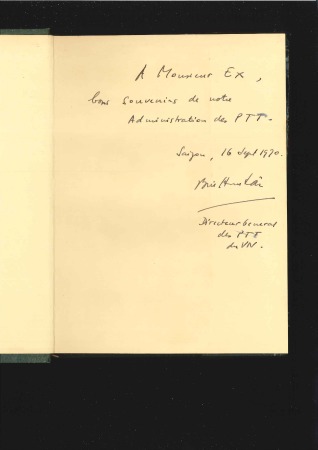 A Monsieur Ex,
bons souvenirs de notre
Administration des PTT.
Saigon, 16 Sept 1970.
Directeur General
des PTT
du VN.